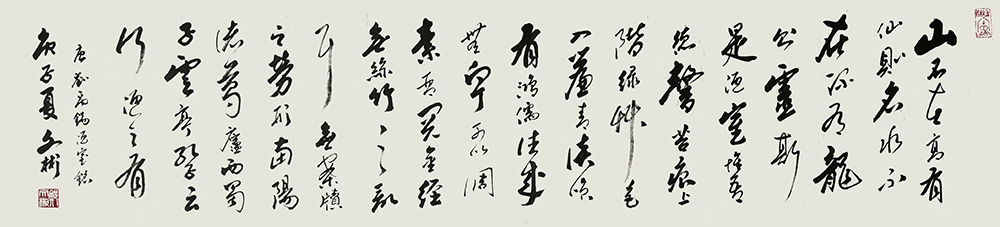 山不在高有
仙則名水不
在深有龍
則靈斯
是陋室惟吾
德馨苔痕上
階緑草色
入簾青談笑
有鴻儒往來
無白丁可以調
素琴閱金經
無絲竹之亂
耳無案牘
之勞形南陽
諸葛廬西蜀
子雲亭孔子云
何陋之有
唐劉禹錫陋室銘
庚子夏文彬